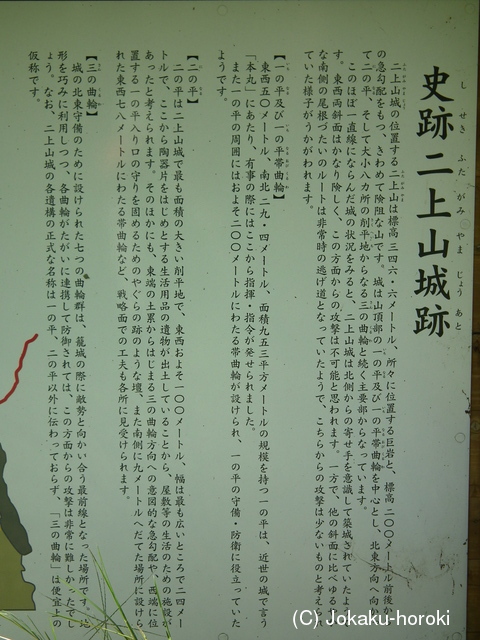 史跡 二上山城跡
し せき ふた がみ やま じょう あと
二上山城の位置する二上山は標高三四六・六メートル、所々に位置する巨岩と、標高二〇〇メートル前後か
の急勾配をもつ、きわめて険阻な山です。城は山頂部の一の平及び一の平帯曲輪を中心とし、北東方向へ向
て二の平、そして大小八カ所の削平地からなる三の曲輪と続く主要部からなっています。
このほぼ一直線にならんだ城の状況をみると、二上山城は北側からの寄せ手を意識して築城されていたよ
す。東西両斜面はかなり険しく、この方面からの攻撃は不可能と思われます。一方で、他の斜面に比べゆる
な南側の尾根づたいのルートは非常時の逃げ道となっていたようで、こちらからの攻撃は少ないものと考え
ていた様子がうかがわれます。
【一の平及び一の平帯曲輪】
東西五〇メートル、南北二九・四メートル、面積九五三平方メートルの規模を持つ一の平は、近世の城で言う
「本丸」にあたり、有事の際にはここから指揮・指令が発せられました。
また一の平の周囲にはおよそ二〇〇メートルにわたる帯曲輪が設けられ、一の平の守備・防衛に役立っていた
ようです。
【二の平】
二の平は二上山城で最も面積の大きい削平地で、東西およそ一〇〇メートル、幅は最も広いところで二四メー
トルで、ここから陶器片をはじめとする生活用品の遺物が出土していることから、屋敷等の生活のための施設が
あったと考えられます。そのほかにも、東端の土累からはじまる三の曲輪方向への意図的な急勾配や、西端に位
置する一の平入り口の守りを固めるためのやぐらの跡のような壇、また南側に九メートルへだてた場所に設けら
れた東西七八メートルにわたる帯曲輪など、戦略面での工夫も各所に見受けられます。
【三の曲輪】
城の北東守備のために設けられた七つの曲輪群は、籠城の際に敵勢と向かい合う最前線となった場所です。地
形を巧みに利用しつつ、各曲輪がたがいに連携して防御されては、この方面からの攻撃は非常に難しかったでし
ょう。なお、二上山城の各遺構の正式な名称は一の平、二の平以外に伝わっておらず、「三の曲輪」は便宜上の
仮称です。
(C) Jokaku-horoki